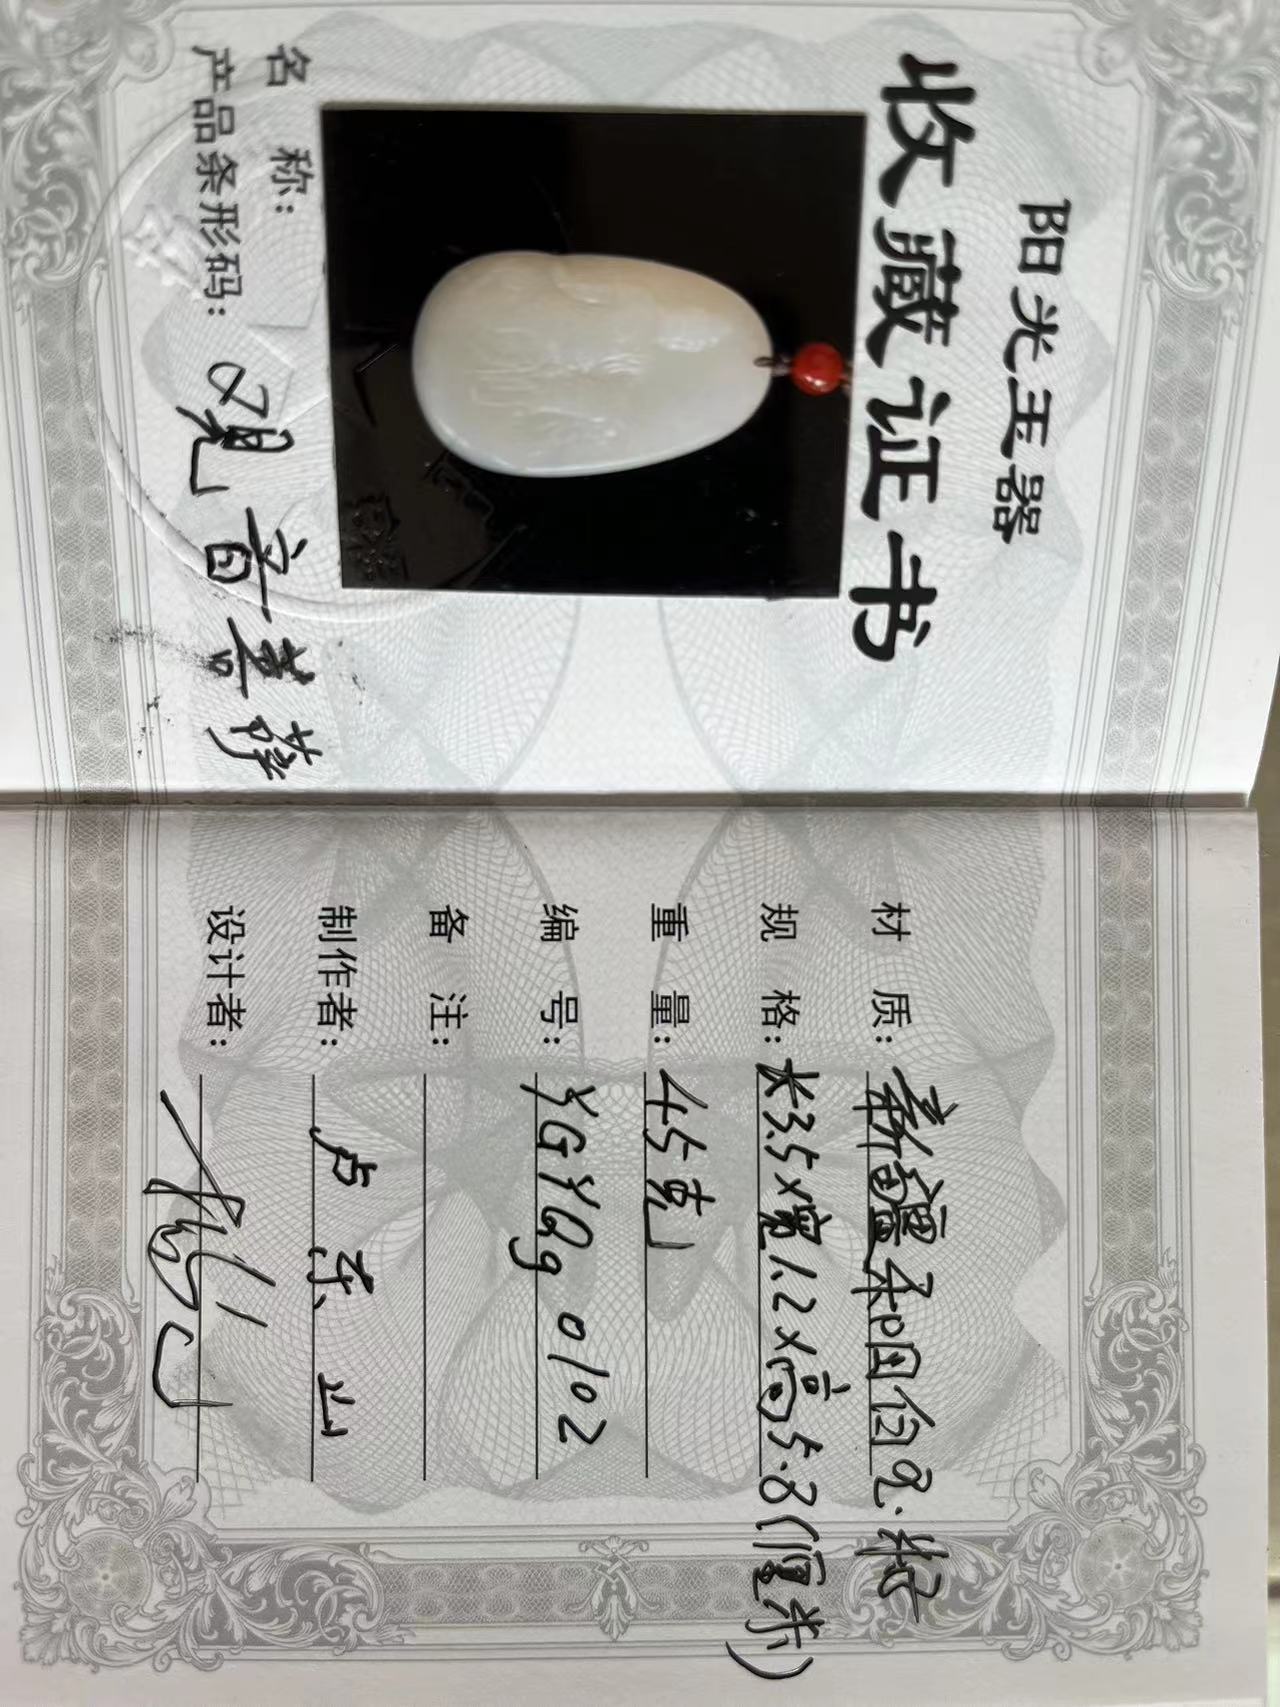 阳光玉器
收藏证书
名 称：观音菩萨
产品条形码：
材 质：新疆和田白玉.籽
规 格：长3.5×宽1.2×高5.8(厘米)
重 量：45克
编 号：YGYQg 0102
备 注：
制作者：卢东山
设计者：